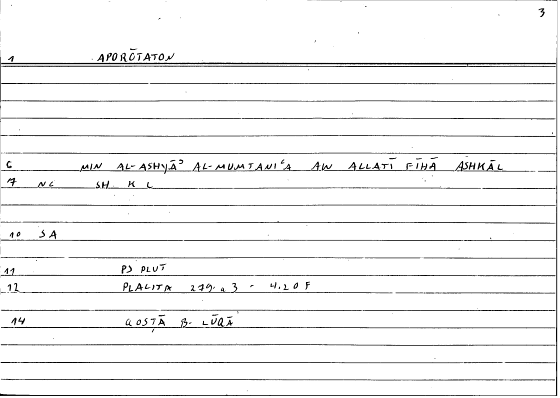 3
1 APORŌTATON
6 MIN AL-ASHYĀʾ AL-MUMTANIʿA AW ALLATĪ FĪHĀ ASHKĀL
7 NC SH K L
10 SA
11 PS PLUT
12 PLACITA 279.a 3 - 4.20 F
14 QOSṬĀ B. LŪQĀ